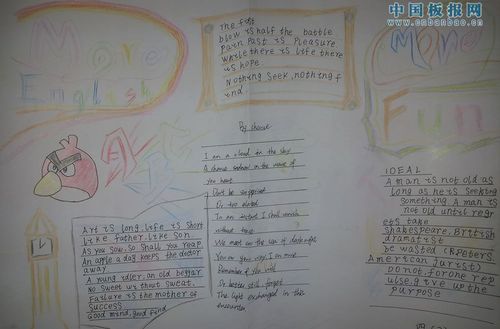 中国板报网
www.cnbanbao.cn
More
English
The first
blow is half the battle
Pain Past is Pleasure
While there is life there
is hope
Nothing seek, nothing f
ind.
More
Fun
By chance
I am a cloud in the sky
A chance in the wave of
you heart
Don't be surprised
Or too elated
In an instant I shall vanish
without trace
We meet on the sea of dark night
You on your way, I on mine
Remember if you will
Or better still, forget
The light exchanged in this
encounter
Art is long, life is short
Like father, like son.
As you sow, so shall you reap.
An apple a day keeps the doctor
away
A young idler, an old beggar
No sweet without sweat.
Failure is the mother of
success
Good mind, good find
IDEAL
A man is not old as
long as he is seeking
something. A man is
not old until regr
ets take
shakespeare, British
dramatist
be wasted (R.Peters.
American
Do not, for one rep
ulse, give up the
purpose